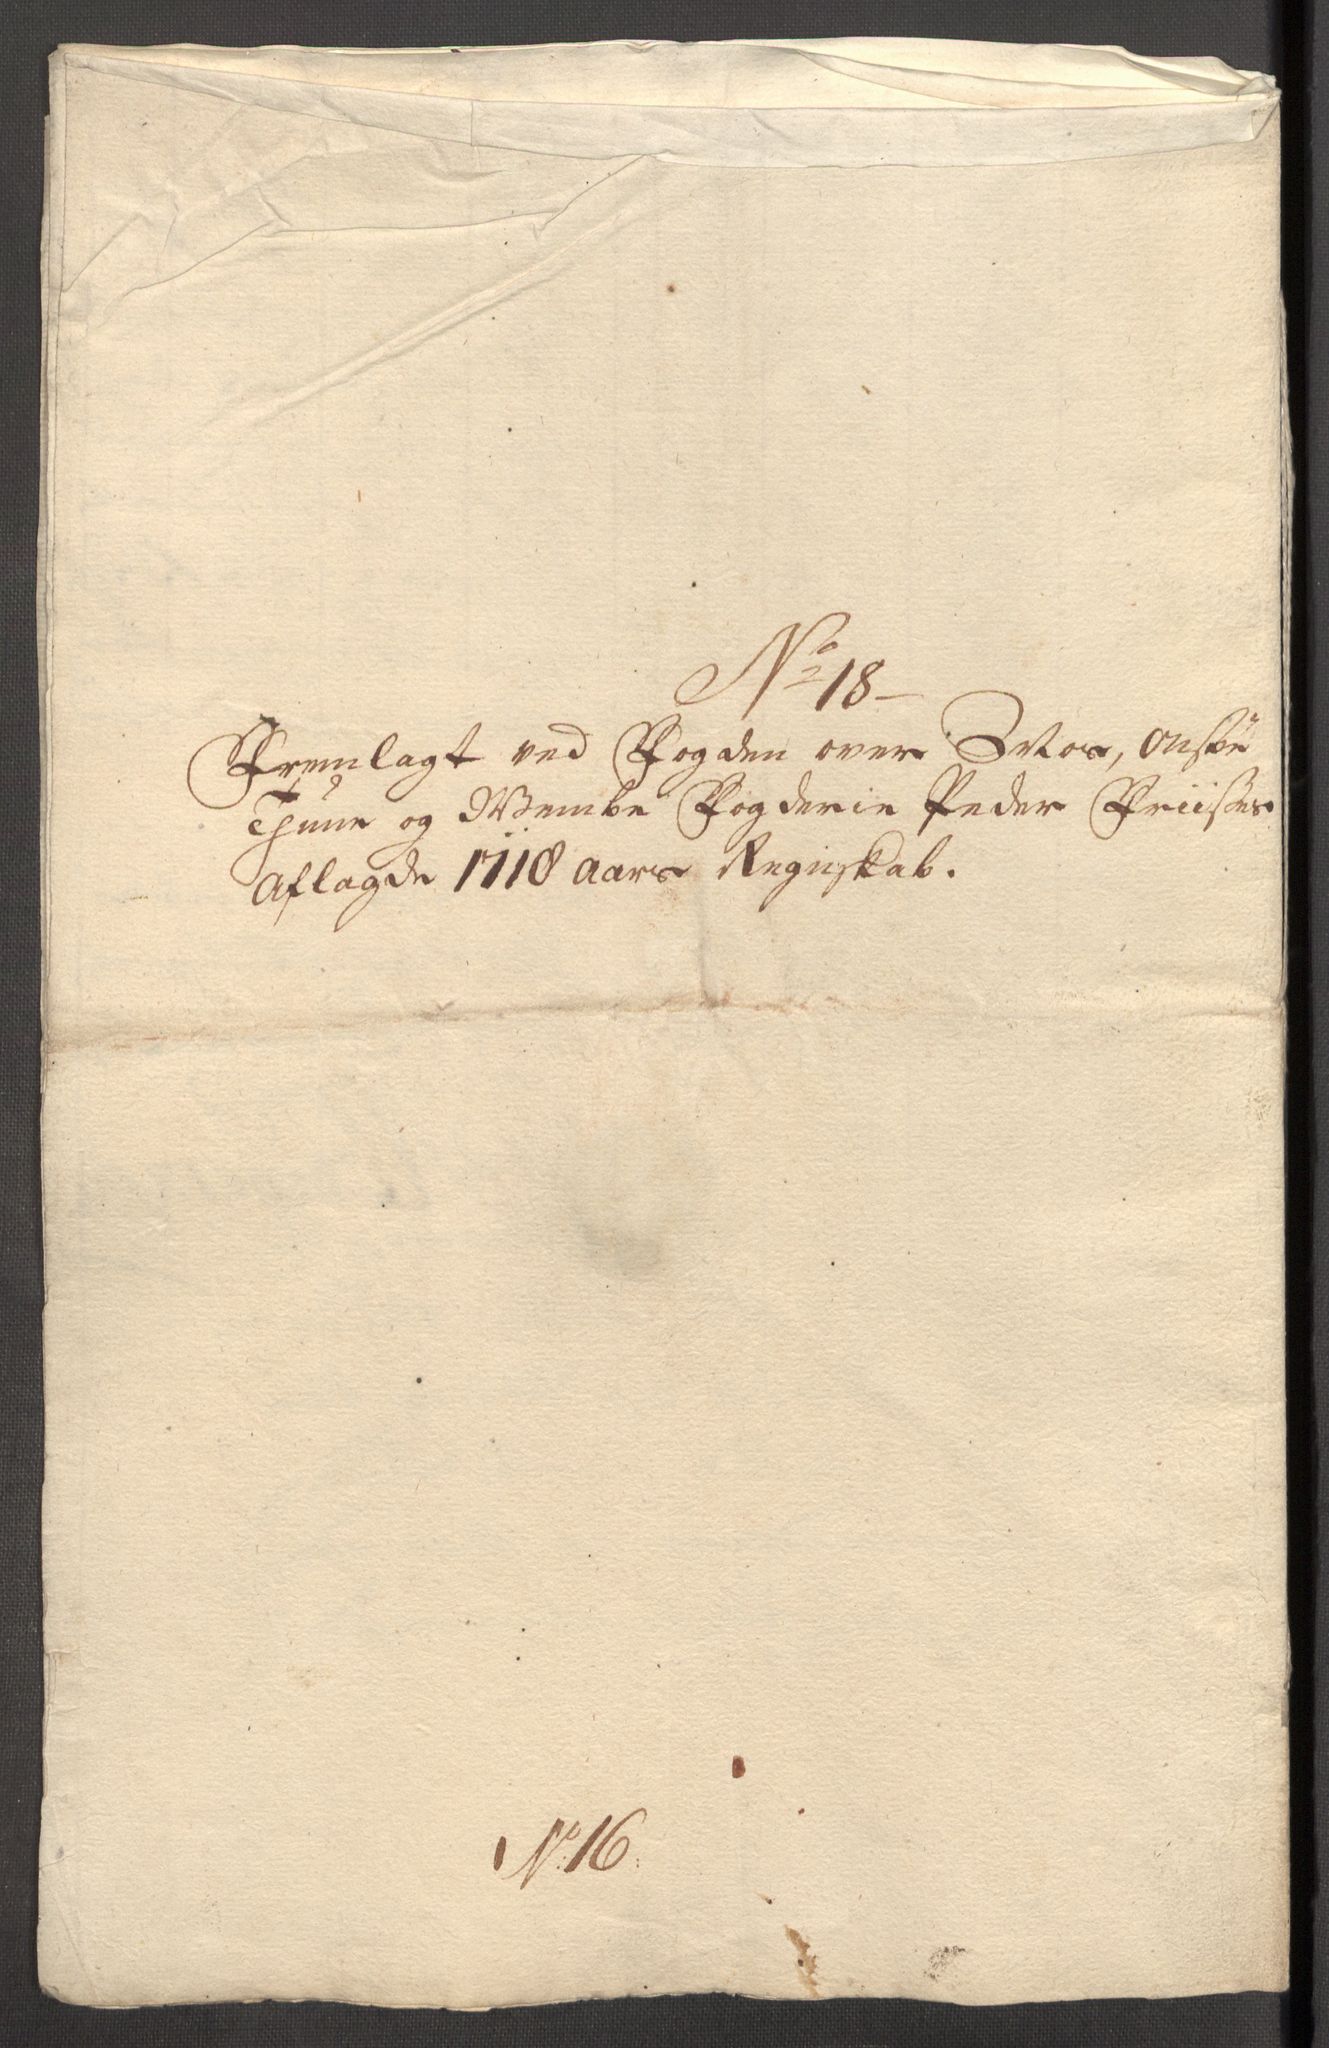 No 18
Fremlagt ved Fogden over Mos, Onsöe
Thune og Wembe Fogderie Peder Friises
Aflagde 1710 Aars Regnskab.
No 16